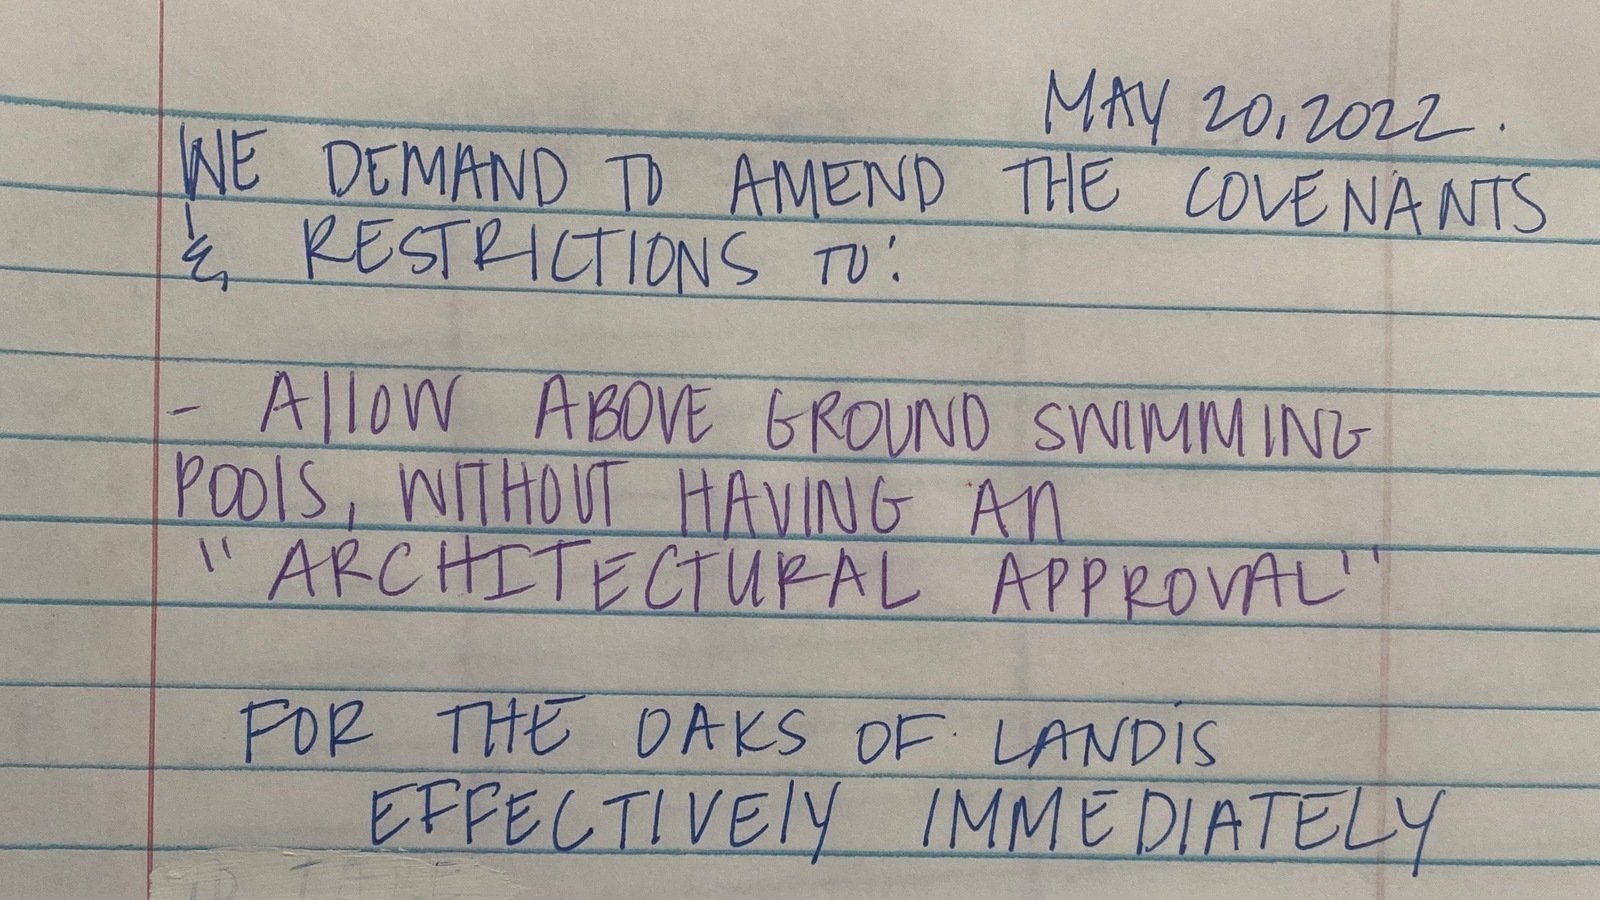 MAY 20, 2022.
WE DEMAND TO AMEND THE COVENANTS
& RESTRICTIONS TO:
- AllOW ABOVE GROUND SWIMMING
POOlS, WITHOUT HAVING An
"ARCHITECTURAL APPROVAL"
FOR THE OAKS OF LANDiS
EFFECTIVElY IMMEDIATELY